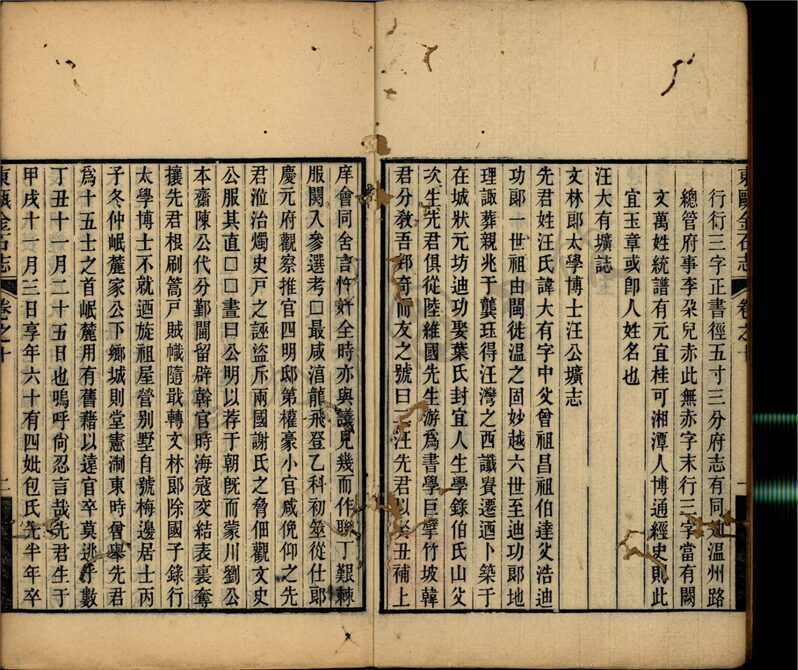 東甌金石志 卷之十 一
行衍三字正書徑五寸三分府志有同知溫州路
總管府事李朶兒亦此無赤字末行三字當有闕
文萬姓統譜有元宜桂可湘潭人博通經史則此
宜玉章或卽人姓名也
汪大有壙誌
文林郎太學博士汪公壙志
先君姓汪氏諱大有字中父曾祖昌祖伯達父浩迪
功郎一世祖由閩徙溫之固妙越六世至迪功郎地
理諏葬親兆于龔珏得汪灣之西讖賚遷迺卜築于
在城狀元坊迪功娶葉氏封宜人生學錄伯氏山父
次生先君俱從陸維國先生游爲書學巨擘竹坡韓
君分敎吾郡奇而友之號曰二汪先君以癸丑補上
庠會同舍言忤奸全時亦與議見幾而作聯丁艱棘
服闋入參選考□最咸淳龍飛登乙科初筮從仕郎
慶元府觀察推官四明邸第權豪小官咸俛仰之先
君涖治燭史戸之誣盜斥兩國謝氏之脅佃觀文史
公服其直□□晝曰公明以荐于朝旣而蒙川劉公
本齋陳公代分鄞閫留辟幹官時海寇交結表裏奪
攘先君根刷篙戸賊幟隨戢轉文林郎除國子錄行
太學博士不就迺旋祖屋營别墅自號梅邊居士丙
子冬仲岷麓家公下鄉城則堂憲淛東時曾摹先君
爲十五士之首岷麓用有舊藉以遠官卒莫逃乎數
丁丑十一月二十五日也嗚呼尙忍言哉先君生于
甲戌十一月三日享年六十有四妣包氏先半年卒
東甌金石志 卷之十 二